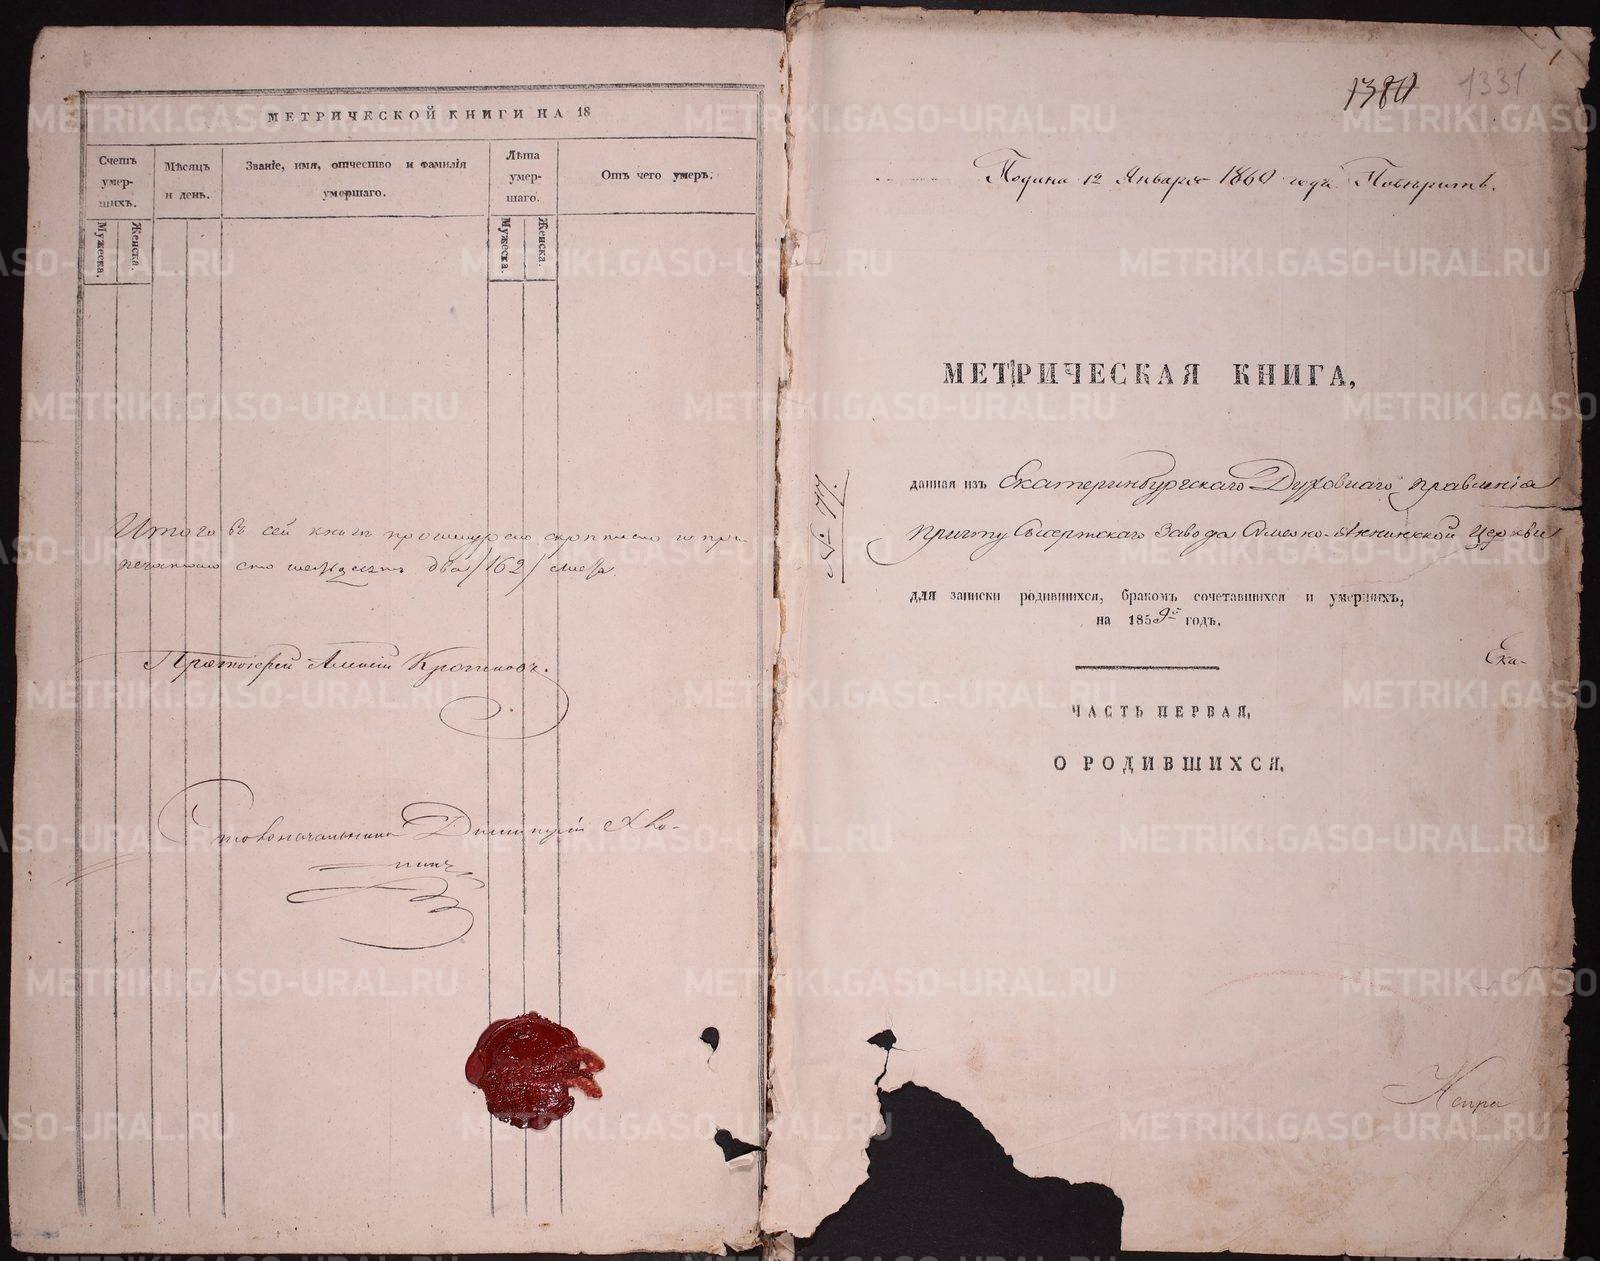 МЕТРИЧЕСКОЙ КНИГИ НА 18
Счетъ умер-шихъ.
Мужеска.
Женска.
Мѣсяцъ и день.
Званіе, имя, отчество и фамилія умершаго.
Лѣта умер-шаго.
Мужеска.
Женска.
Отъ чего умеръ.
Итого въ сей книгѣ прошнуровано скрѣплено и при-
печатано сто шездесятъ два /162/ листа.
Протоіерей Алексій
Столоначальникъ Димитрій Хво-
1380
1331
1
Подана 12 Января 1860 года.
МЕТРИЧЕСКАЯ КНИГА,
данная изъ Екатеринбургскаго Духовнаго правленія
причту Сысертскаго завода Симеоно-Аннинской Церкви
для записки родившихся, бракомъ сочетавшихся и умершихъ,
на 1859й годъ.
Ека-
ЧАСТЬ ПЕРВАЯ,
О РОДИВШИХСЯ.
METRIKI.GASO-URAL.RU